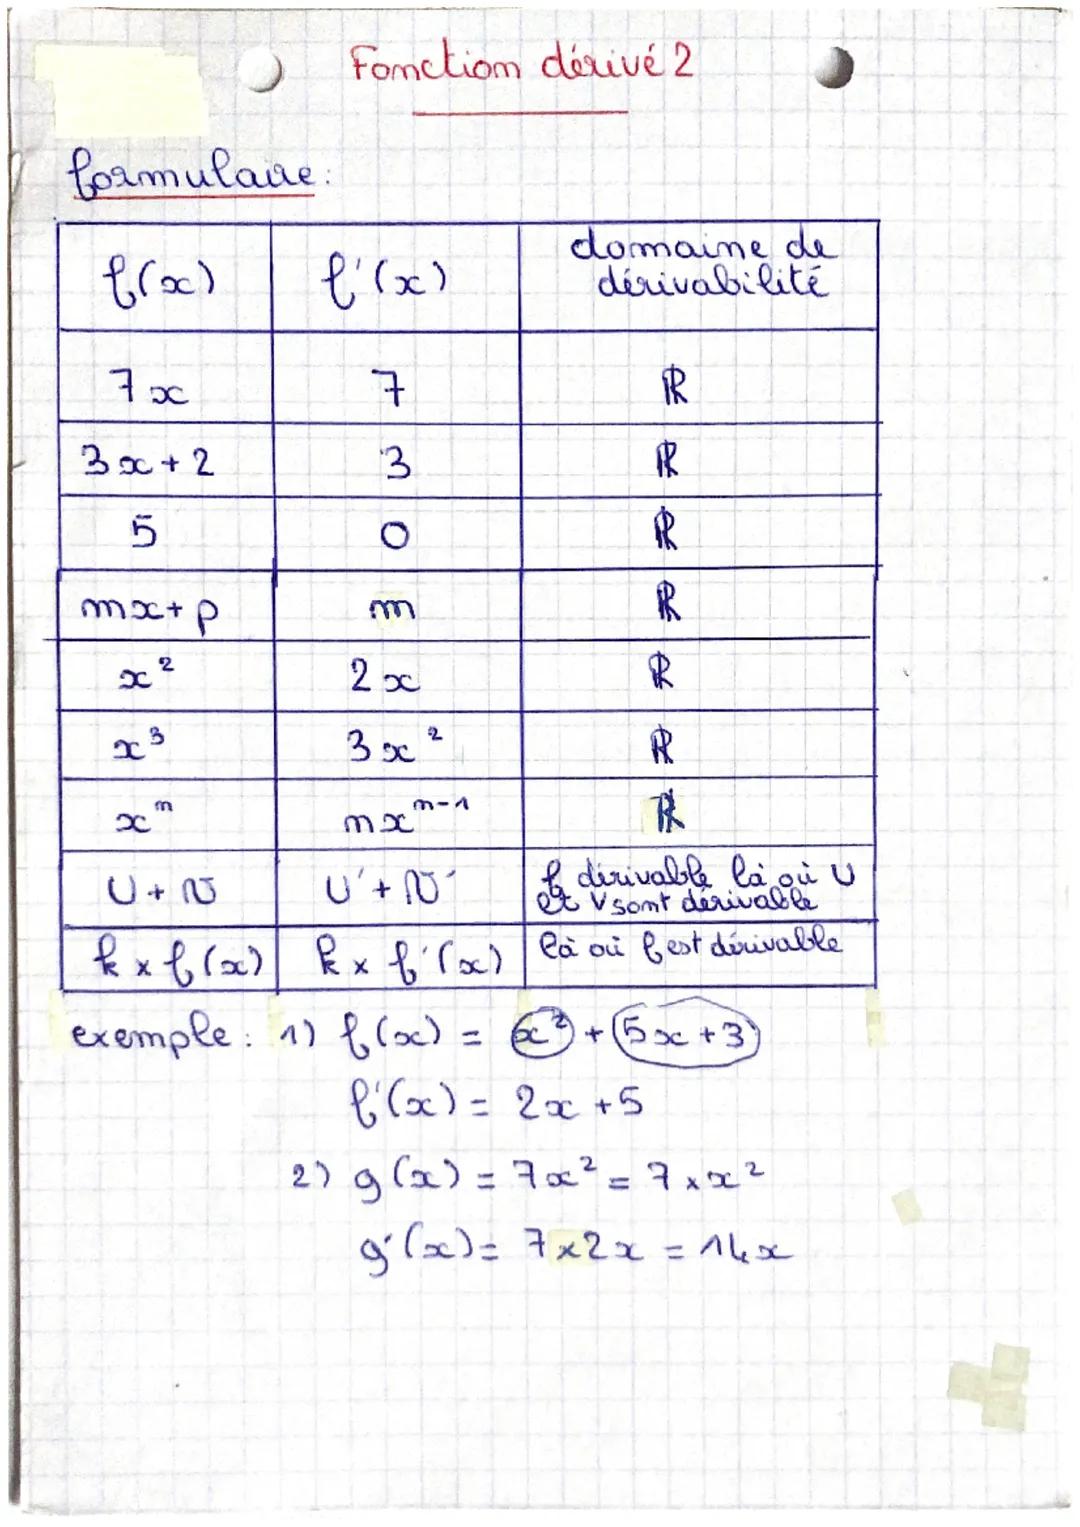 Fonction dérivé 2
formulaire:
f(x) f'(x) domaine de dérivabilité
7x 7 ℝ
3x + 2 3 ℝ
5 0 ℝ
mx + p m ℝ
x² 2x ℝ
x³ 3x² ℝ
xⁿ nxⁿ⁻¹ ℝ
U + V U' + V' f dérivable là où U et V sont dérivable
k × f(x) k × f'(x) là où f est dérivable
exemple : 1) f(x) = x² + (5x + 3)
f'(x) = 2x + 5
2) g(x) = 7x² = 7 × x²
g'(x) = 7 × 2x = 14x